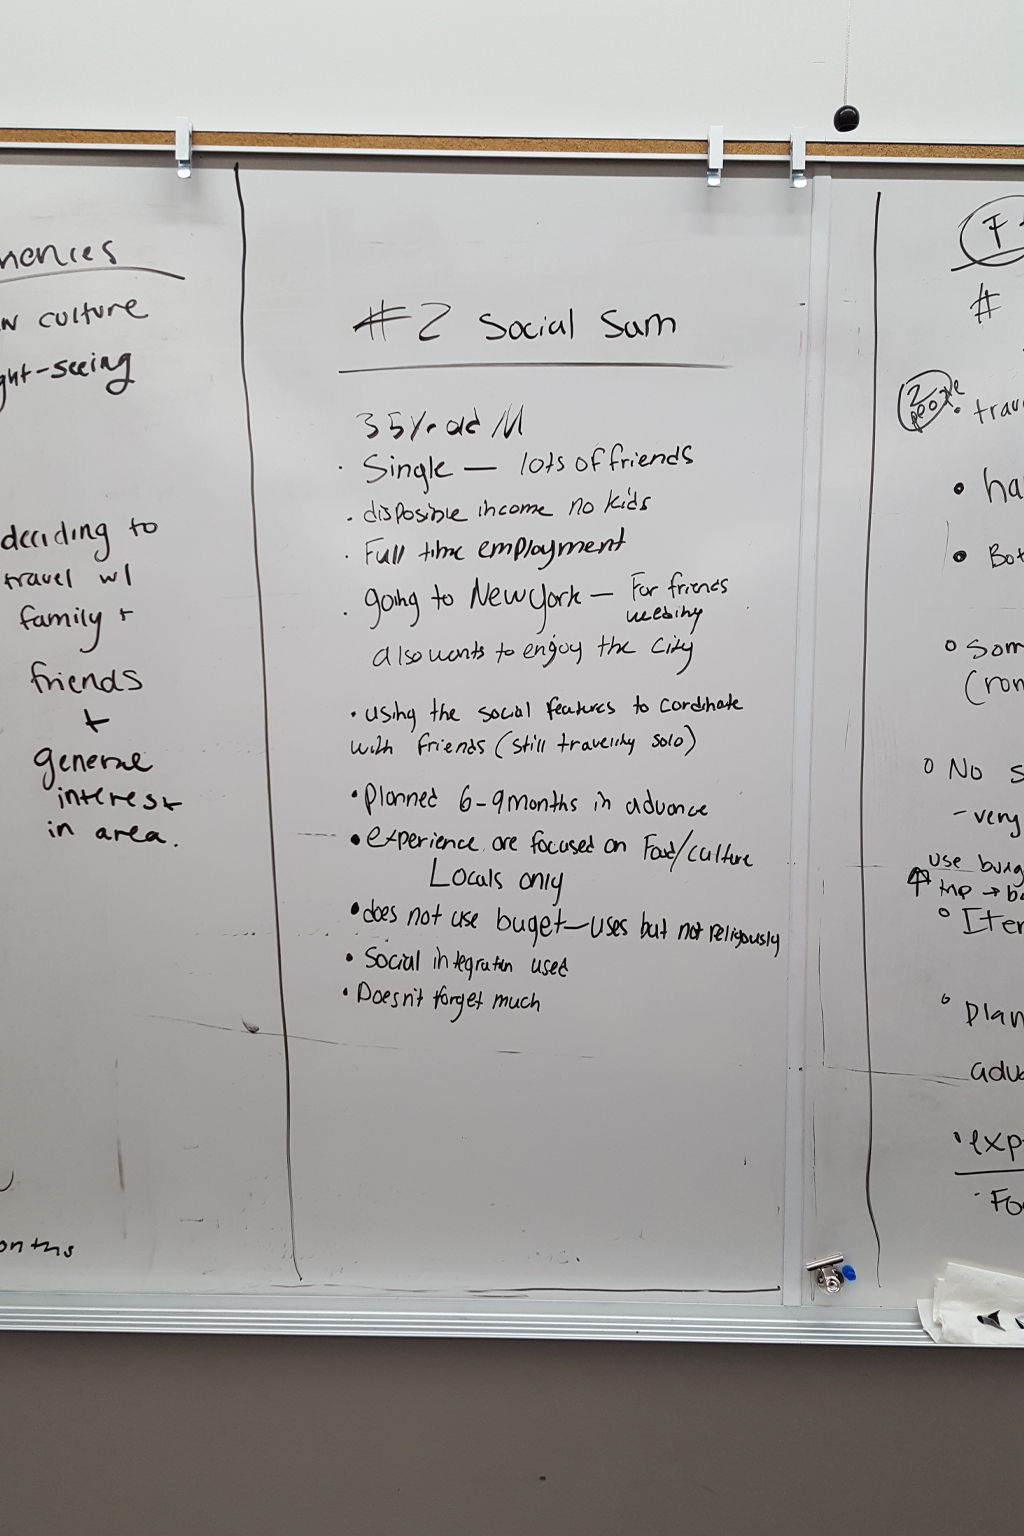 culture
ght-seeing
deciding to
travel w/
family +
friends
+
general
interest
in area.
onths
#2 Social Sam
35 Yr old M
· Single — lots of friends
· disposible income no kids
· Full time employment
· going to New York — For friends
wedding
also wants to enjoy the city
· using the social features to cordinate
with friends (still traveling solo)
· planned 6-9 months in advance
· experience are focused on Food/culture
Locals only
· does not use buget — uses but not religously
· Social integration used
· Doesn't forget much
#
2
people
· trav
· ha
· Bot
o som
(ron
o No s
- very
use budg
trip → b
o Iter
o plan
adva
· exp
- Fo